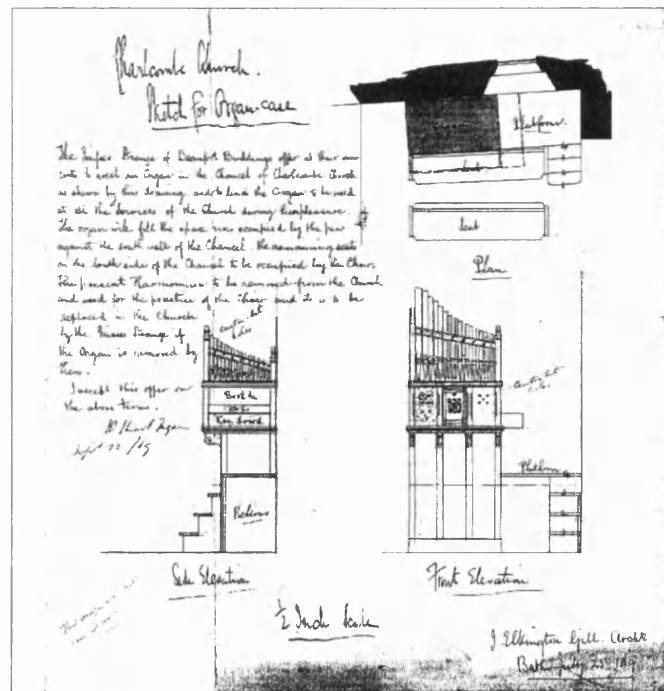 Charlcombe Church.
Sketch for Organ-case
The Misses Strange of Beaufort Buildings offer at their own
costs to erect an Organ in the Chancel of Charlcombe Church
as shewn by this drawing, and to lend the Organ to be used
at all the Services of the Church during their pleasure.
The organ will fill the space now occupied by the pew
against the south wall of the Chancel. the remaining seats
on the South side of the Chancel to be occupied by the Choir.
The present Harmonium to be removed from the Church
and used for the practice of the Choir and it is to be
replaced in the Church
by the Misses Strange if
the Organ is removed by
them.
I accept this offer on
the above terms.
Sept 22 /69
Book
Key board
Bellows
Side Elevation
Platform.
Seat
Seat
Plan
Platform
Front Elevation
1/2 Inch Scale
J Elkington Gill. Archt
Bath July 25 1869